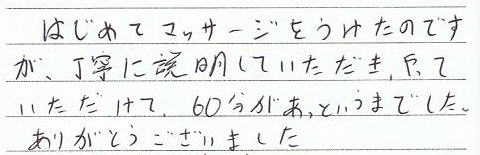 はじめてマッサージをうけたのです
が、丁寧に説明していただき、
いただけて、60分があっというまでした。
ありがとうございました